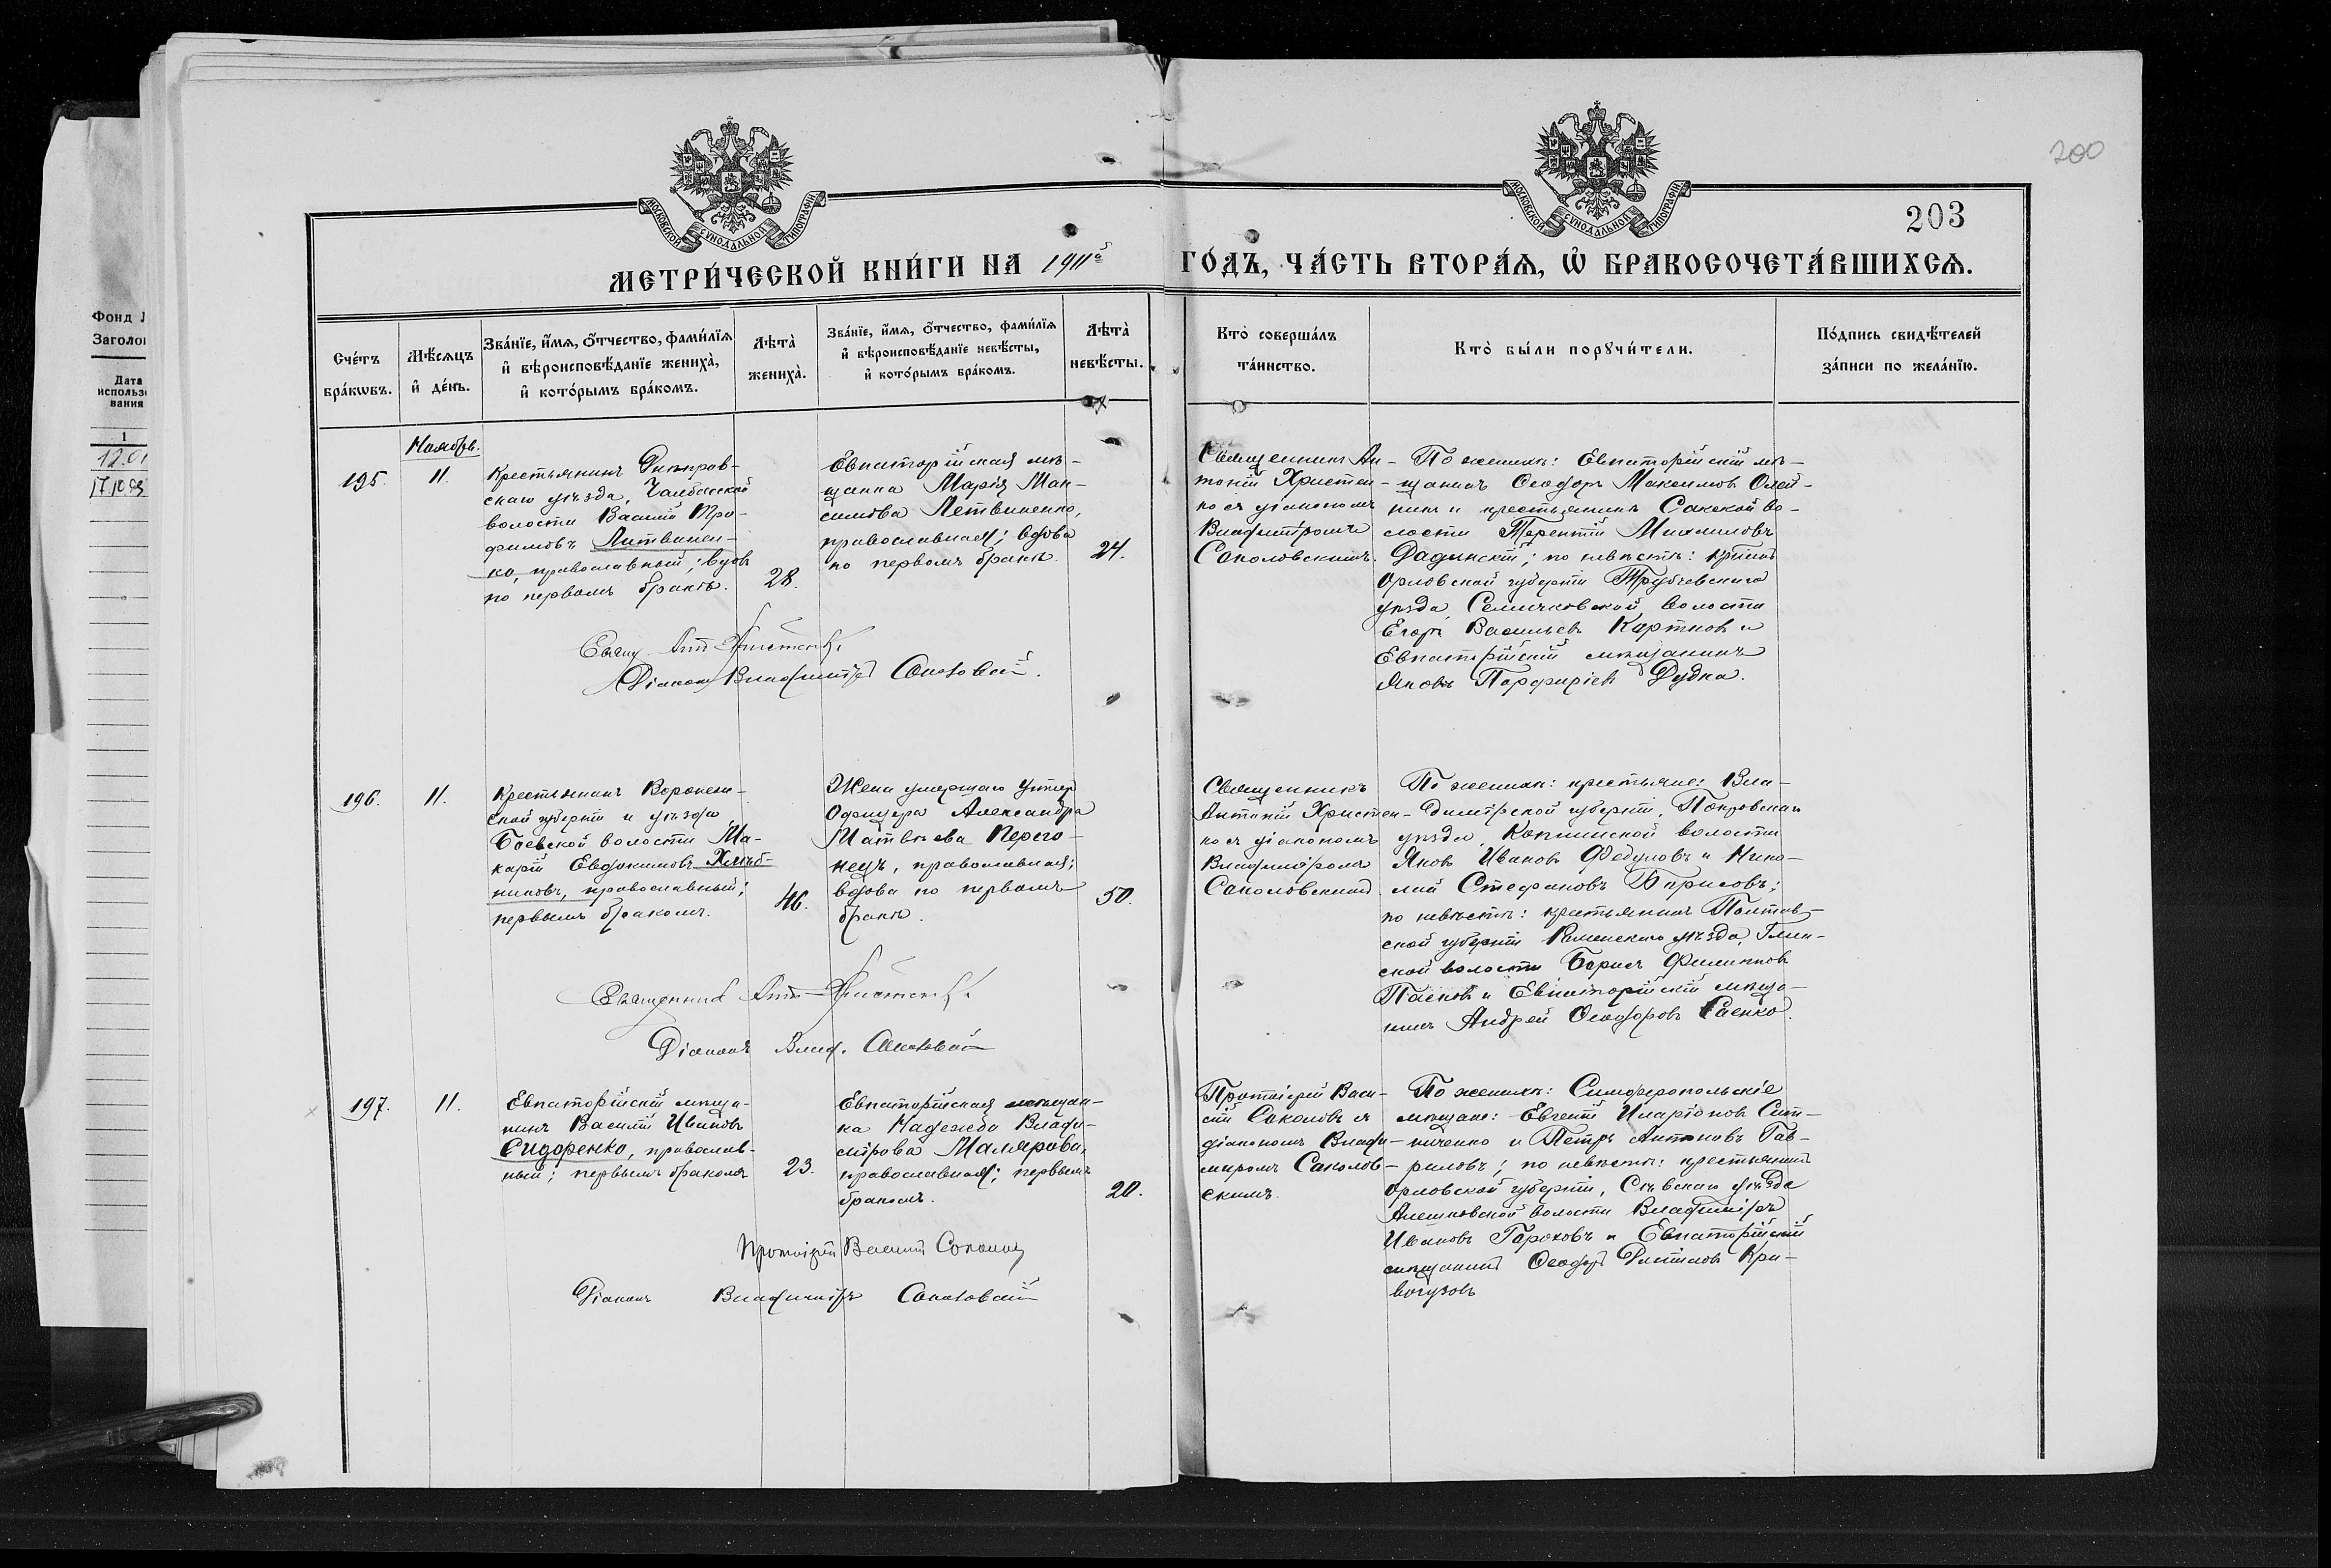 200
203
МОСКОВСКОЙ СѴНОДАЛЬНОЙ ТИПОГРАФІИ
МОСКОВСКОЙ СѴНОДАЛЬНОЙ ТИПОГРАФІИ
МЕТРИ́ЧЕСКОЙ КНИ́ГИ НА 1911й ГО́ДЪ, ЧА́СТЬ ВТОРА́Ѧ, Ѽ БРАКОСОЧЕТА́ВШИХСѦ.
Фонд
Дата
использо
вания
1
Сче́тъ
бра́кѡвъ.
Мѣ́сѧцъ
и҆ де́нь.
Зва́нїе, и҆́мѧ, ѻ҆́тчество, фами́лїѧ
и҆ вѣроисповѣ́данїе жениха̀,
и҆ кото́рымъ бра́комъ.
Лѣта̀
жениха̀.
Зва́нїе, и҆́мѧ, ѻ҆́тчество, фами́лїѧ
и҆ вѣроисповѣ́данїе невѣ́сты,
и҆ кото́рымъ бра́комъ.
Лѣта̀
невѣ́сты.
Кто̀ соверша́лъ
та́инство.
Кто̀ бы́ли порꙋчи́тели.
По́дпись свидѣ́телей
за́писи по жела́нїю.
Ноябрь.
195.
11.
Крестьянинъ Днѣпров-
скаго уѣзда, Чалбасской
волости Василій Тро-
фимовъ Литвинен-
ко, православный; вдовъ
по первомъ бракѣ.
28.
Евпаторійская мѣ-
щанка Марія Мак-
симова Летвиненко,
православная; вдова
по первомъ бракѣ.
24.
Священникъ Ан-
тоній Христен-
ко съ діакономъ
Владиміромъ
Соколовскимъ.
По женихѣ: Евпаторійскій мѣ-
щанинъ Ѳеодоръ Максимовъ Олей-
никъ и крестьянинъ Сакской во-
лости Терентій Михаиловъ
Дадинскій; по невѣстѣ: кр-нинъ
Орловской губерніи Трубчевскаго
уѣзда Семячковской волости
Егоръ Васильевъ Картновъ и
Евпаторійскій мѣщанинъ
Яковъ Порфиріевъ Дудка.
Свящ. Ант. Христенко.
Діаконъ Владиміръ Соколовскій.
196.
11.
Крестьянинъ Воронеж-
ской губерніи и уѣзда
Боевской волости Ма-
карій Евдокимовъ Хлѣб-
никовъ, православный;
первымъ бракомъ.
46.
Жена умершаго унтеръ
офицера Александра
Матвѣева Перего-
нецъ, православная;
вдова по первомъ
бракѣ.
50.
Священникъ
Антоній Христен-
ко съ діакономъ
Владиміромъ
Соколовскимъ.
По женихѣ: крестьяне: Вла-
димірской губерніи, Покровскаго
уѣзда, Копнинской волости
Яковъ Ивановъ Федуловъ и Нико-
лай Стефановъ Борисовъ;
по невѣстѣ: крестьянинъ Полтав-
ской губерніи Роменскаго уѣзда, Глин-
ской волости Борисъ Филипповъ
Пасковъ и Евпаторійскій мѣща-
нинъ Андрей Ѳеодоровъ Саенко.
Священникъ Ант. Христенко.
Діаконъ Влад. Соколовскій
197.
11.
Евпаторійскій мѣща-
нинъ Василій Ивановъ
Сидоренко, православ-
ный; первымъ бракомъ
23.
Евпаторійская мѣщан-
ка Надежда Влади-
мірова Малярова,
православная; первымъ
бракомъ.
20.
Протоіерей Васи-
лій Соколовъ съ
діакономъ Влади-
миромъ Соколов-
скимъ.
По женихѣ: Симферопольскіе
мѣщане: Евгеній Иларіоновъ Сит-
ниченко и Петръ Антоновъ Гав-
риловъ; по невѣстѣ: крестьянинъ
Орловской губерніи, Сѣвскаго уѣзда
Алешковской волости Владиміръ
Ивановъ Гороховъ и Евпаторійскій
мѣщанинъ Ѳеодоръ Кри-
вогузовъ
Протоіерей Василій Соколовъ
Діаконъ Владиміръ Соколовскій